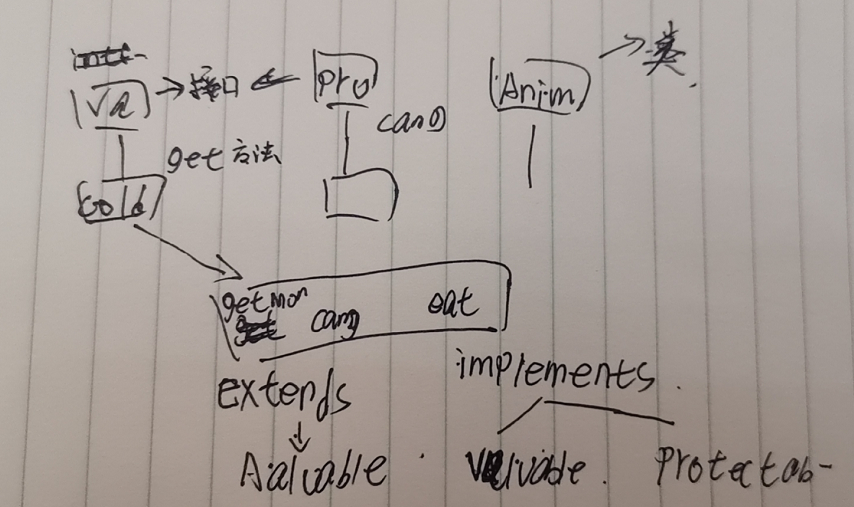 Va → 接口 ← Pro
Anim → 类
cang
get 方法
Gold
getmon cang eat
extends
implements
Aaluable
Valuable
Protectab-